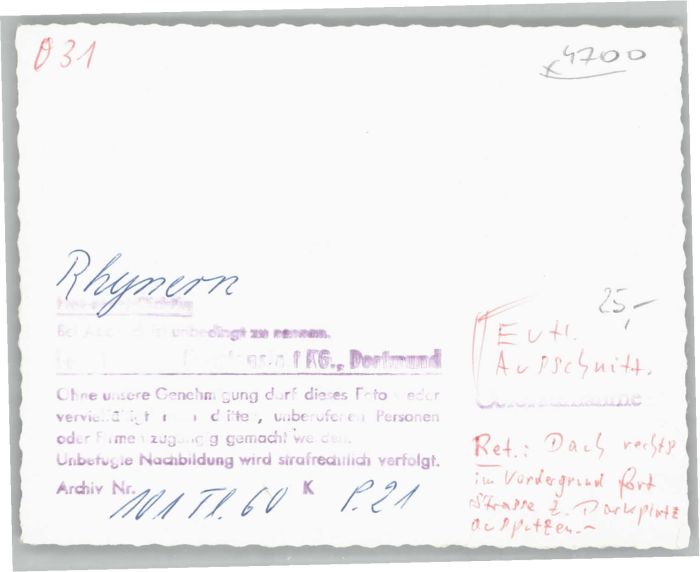 031
x 4700
Rhynern
25,-
unbedingt zu nennen.
KG., Dortmund
Ohne unsere Genehmigung darf dieses Foto weder
vervielfältigt noch dritten, unberufenen Personen
oder Firmen zugängig gemacht werden.
Unbefugte Nachbildung wird strafrechtlich verfolgt.
Archiv Nr. 101 Tl. 60 K P. 21
Evtl.
Ausschnitt.
Ret.: Dach rechts
im Vordergrund fort
Strasse z. Parkplatz
ausputzen.-